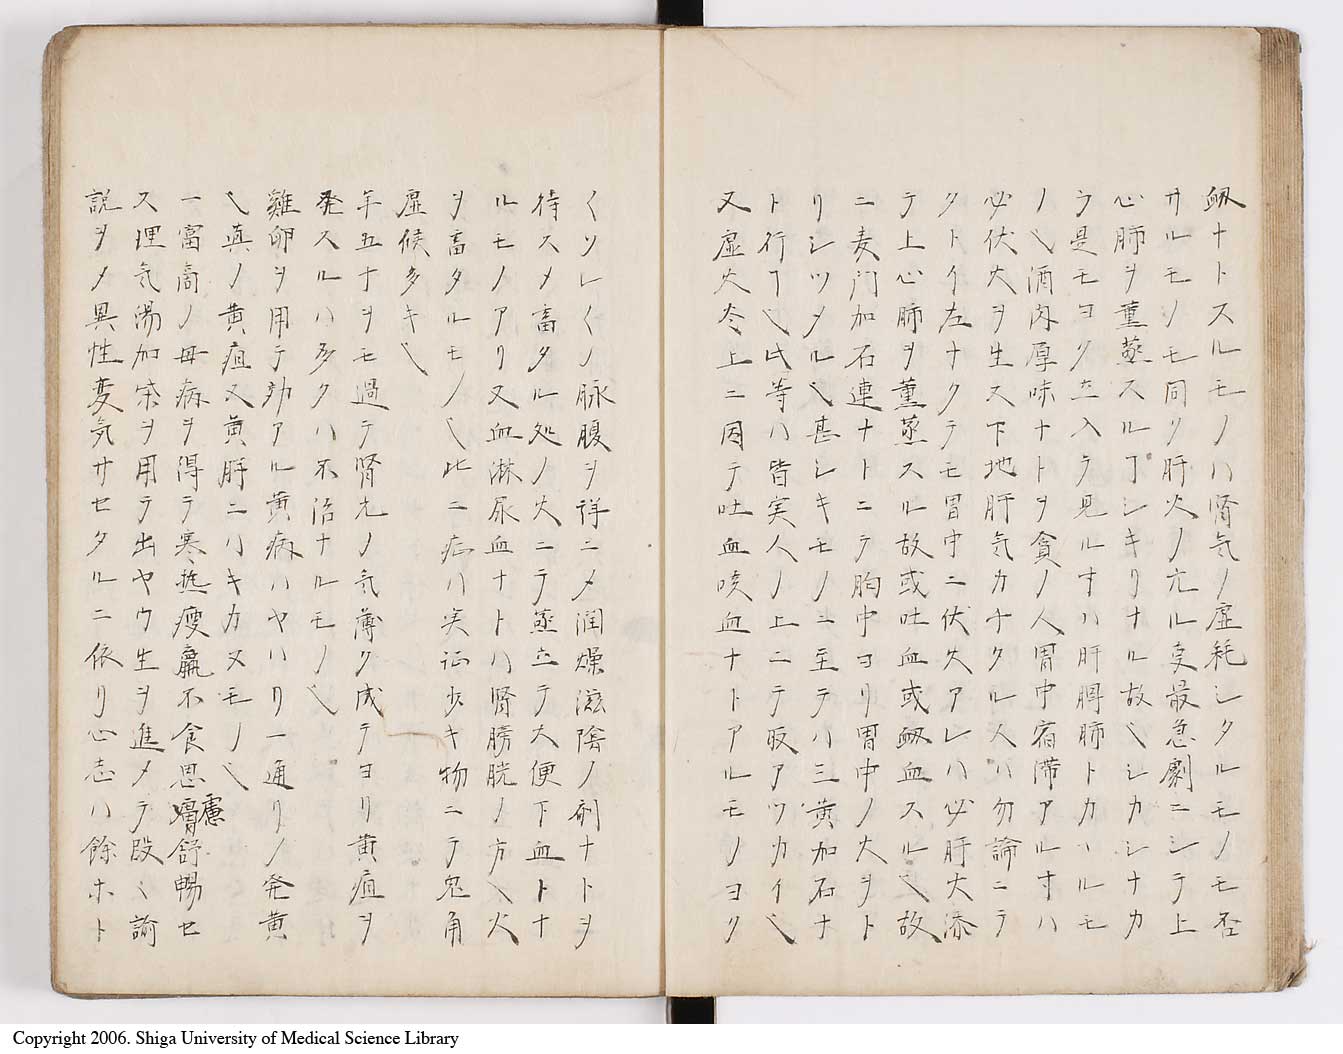 衂ナトスルモノハ腎気ノ虚耗シタルモノモ否
サルモノモ同シ肝火ノ亢ル変最急劇ニシテ上
心肺ヲ薫蒸スルヿシキリナル故ヘシカシナカ
ラ是モヨク立入テ見ルオハ肝膈肺トカハルモ
ノヘ酒肉厚味ナトヲ貪ノ人胃中宿滞アル寸ハ
必伏火ヲ生ス下地肝気カチタル人ハ勿論ニテ
タトイ左ナクテモ胃中ニ伏火アレハ必肝火添
テ上心肺ヲ薫蒸スル故或吐血或衂血スルヘ故
ニ麦門加石連ナトニテ胸中ヨリ胃中ノ火ヲト
リシツメルヘ甚シキモノニ至テハ三黄加石ナ
ト行フヘ此等ハ皆実人ノ上ニテ取アツカイヘ
又虚火炎上ニ因テ吐血咳血ナトアルモノヨク
〱ソレ〱ノ脉腹ヲ詳ニメ潤燥滋陰ノ剤ナトヲ
待スメ畜タル処ノ火ニテ蒸立テ大便下血トナ
ルモノアリ又血淋尿血ナトハ腎膀胱ノ方ヘ火
ヲ畜タルモノヘ此ニ症ハ実証少キ物ニテ兎角
虚候多キヘ
年五十ヲモ過テ腎元ノ気薄ク成テヨリ黄疸ヲ
発スルハ多クハ不治ナルモノヘ
雞卵ヲ用テ効アル黄病ハヤハリ一通リノ発黄
ヘ真ノ黄疸又黄胖ニハキカヌモノヘ
一富商ノ母病ヲ得テ寒熱痩羸不食思慮舒暢セ
ス理気湯加柴ヲ用テ出ヤウ生ヲ進メテ段〻諭
説ヲメ異性変気サセタルニ依リ心志ハ餘ホト
Copyright 2006. Shiga University of Medical Science Library